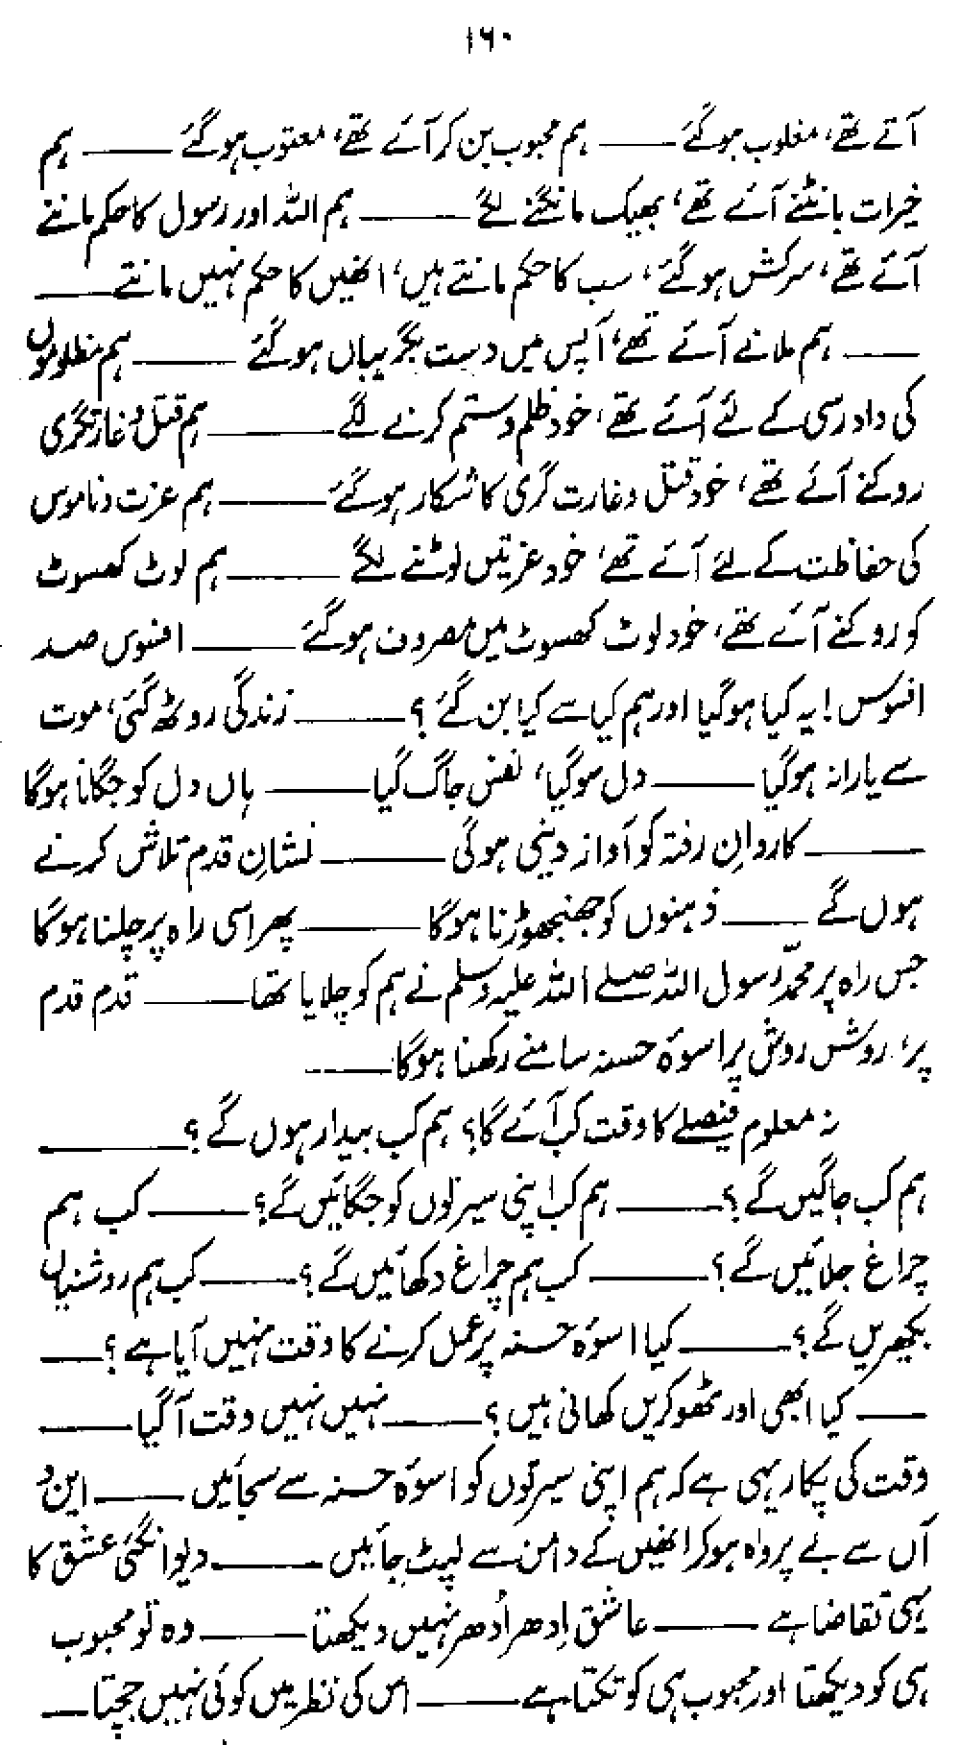 ۱۶۰
آتے تھے، مغلوب ہوگئے —— ہم محبوب بن کر آئے تھے، معتوب ہوگئے —— ہم
خیرات بانٹنے آئے تھے، بھیک مانگنے لگے —— ہم اللہ اور رسول کا حکم ماننے
آئے تھے، سرکش ہوگئے، سب کا حکم مانتے ہیں، انھیں کا حکم نہیں مانتے ——
—— ہم ملانے آئے تھے، آپس میں دست بگریباں ہوگئے —— ہم مظلوموں
کی داد رسی کے لئے آئے تھے، خود ظلم و ستم کرنے لگے —— ہم قتل و غارتگری
روکنے آئے تھے، خود قتل و غارت گری کا شکار ہوگئے —— ہم عزت و ناموس
کی حفاظت کے لئے آئے تھے، خود عزتیں لوٹنے لگے —— ہم لوٹ کھسوٹ
کو روکنے آئے تھے، خود لوٹ کھسوٹ میں مصروف ہوگئے —— افسوس صد
افسوس! یہ کیا ہوگیا اور ہم کیا سے کیا بن گئے؟ —— زندگی روٹھ گئی، موت
سے یارانہ ہوگیا —— دل سوگیا، نفس جاگ گیا —— ہاں دل کو جگانا ہوگا
—— کاروانِ رفتہ کو آواز دینی ہوگی —— نشانِ قدم تلاش کرنے
ہوں گے —— ذہنوں کو جھنجھوڑنا ہوگا —— پھر اسی راہ پر چلنا ہوگا
جس راہ پر محمّد رسول اللہ صلے اللہ علیہ وسلم نے ہم کو چلایا تھا —— قدم قدم
پر، روش روش پر اسوۂ حسنہ سامنے رکھنا ہوگا ——
نہ معلوم فیصلے کا وقت کب آئے گا؟ ہم کب بیدار ہوں گے؟ ——
ہم کب جاگیں گے؟ —— ہم کب اپنی سیرتوں کو جگائیں گے؟ —— کب ہم
چراغ جلائیں گے؟ —— کب ہم چراغ دکھائیں گے؟ —— کب ہم روشنیاں
بکھیریں گے؟ —— کیا اسوۂ حسنہ پر عمل کرنے کا وقت نہیں آیا ہے؟ ——
—— کیا ابھی اور ٹھوکریں کھانی ہیں؟ —— نہیں نہیں وقت آگیا ——
وقت کی پکار یہی ہے کہ ہم اپنی سیرتوں کو اسوۂ حسنہ سے سجائیں —— این و
آں سے بے پرواہ ہوکر انھیں کے دامن سے لپٹ جائیں —— دیوانگئی عشق کا
یہی تقاضا ہے —— عاشق اِدھر اُدھر نہیں دیکھتا —— وہ تو محبوب
ہی کو دیکھتا اور محبوب ہی کو تکتا ہے —— اس کی نظر میں کوئی نہیں جچتا ——